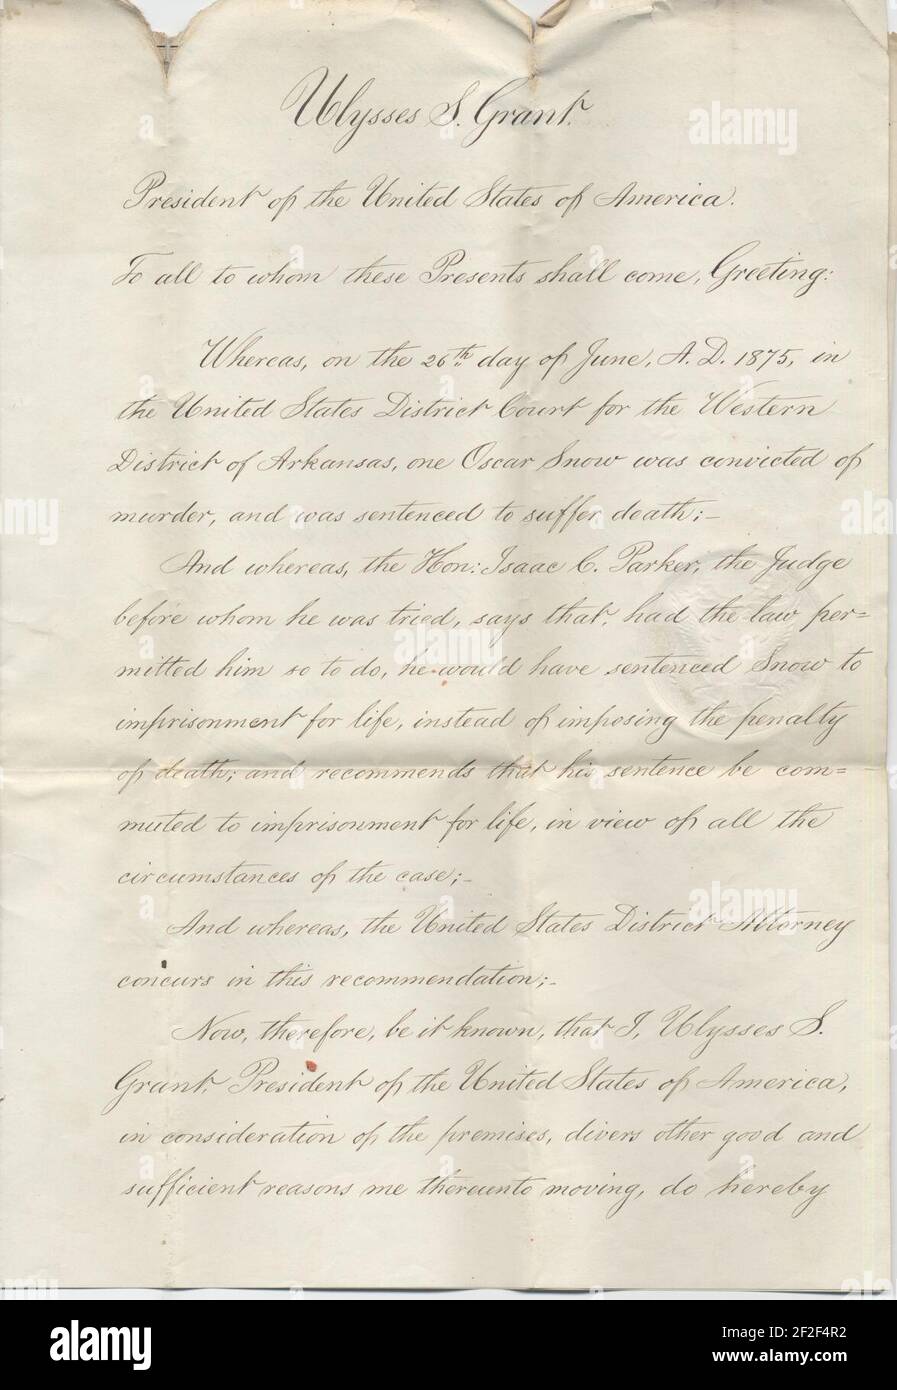 Ulysses S. Grant.
President of the United States of America.
To all to whom these Presents shall come, Greeting:
Whereas, on the 26th day of June, A.D. 1875, in
the United States District Court for the Western
District of Arkansas, one Oscar Snow was convicted of
murder, and was sentenced to suffer death;–
And whereas, the Hon: Isaac C. Parker, the Judge
before whom he was tried, says that, had the law per=
mitted him so to do, he would have sentenced Snow to
imprisonment for life, instead of imposing the penalty
of death; and recommends that his sentence be com=
muted to imprisonment for life, in view of all the
circumstances of the case;–
And whereas, the United States District Attorney
concurs in this recommendation;–
Now, therefore, be it known, that I, Ulysses S.
Grant, President of the United States of America,
in consideration of the premises, divers other good and
sufficient reasons me thereunto moving, do hereby
alamy
Image ID: 2F2F4R2
www.alamy.com